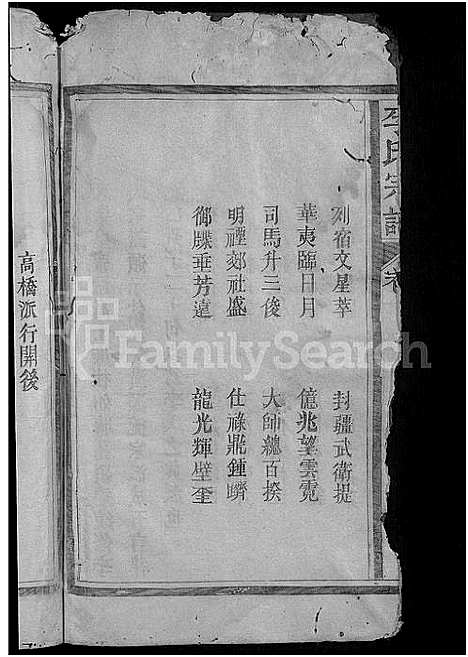 李氏宗譜
卷
列宿文星萃 封疆武衛提
華夷臨日月 億兆望雲霓
司馬升三俊 大師總百揆
明禋郊社盛 仕祿鼎鍾隮
御牒垂芳遠 龍光輝壁奎
高橋派行開後
FamilySearch